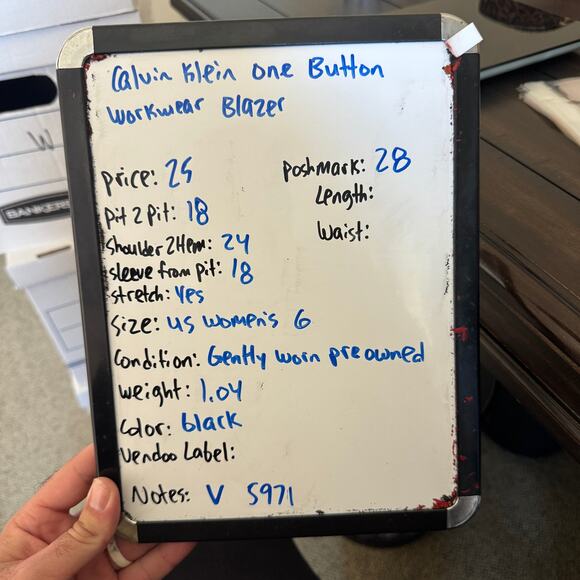 Calvin Klein One Button
Workwear Blazer
price: 25
Poshmark: 28
Length:
Waist:
Pit 2 Pit: 18
Shoulder 2 Hem: 24
sleeve from pit: 18
stretch: Yes
Size: US Women's 6
Condition: Gently worn preowned
weight: 1.04
Color: black
Vendoo Label:
Notes: V 5971
BANKERS